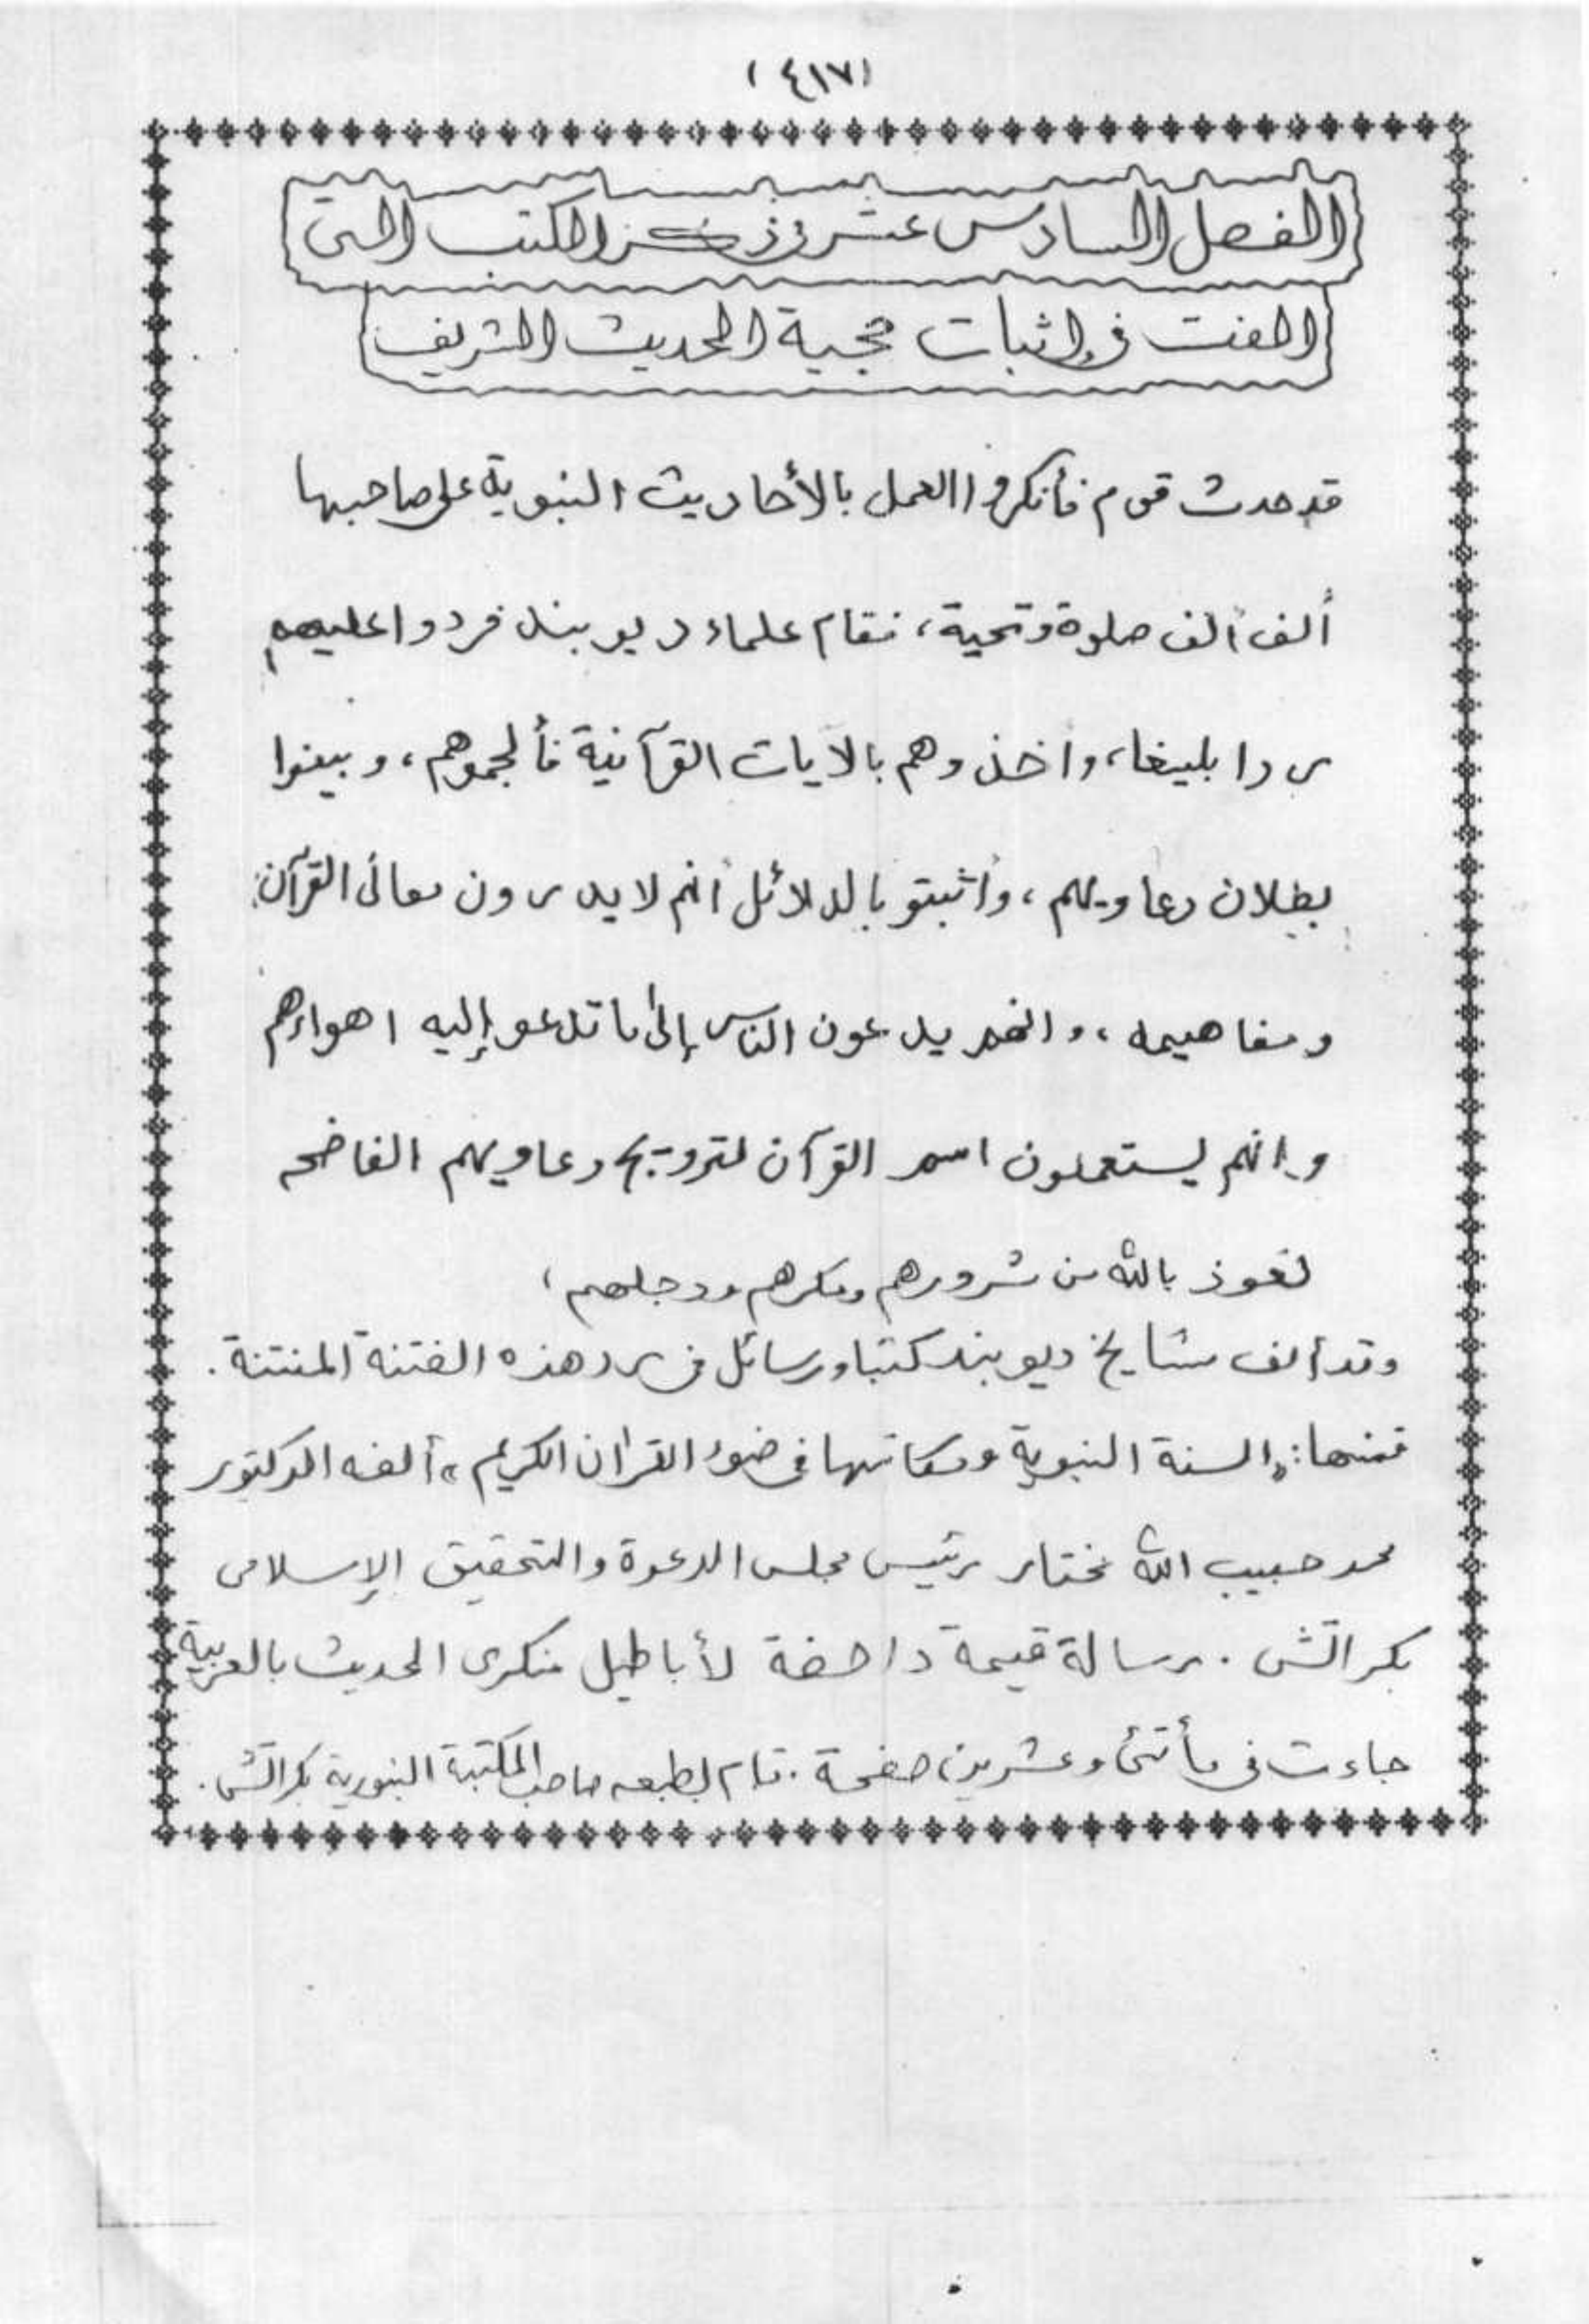 (٤١٧)
الفصل السادس عشر فى ذكر الكتب التى
الفت فى إثبات حجية الحديث الشريف
قد حدث قوم فأنكروا العمل بالأحاديث النبوية على صاحبها
ألف ألف صلوة وتحية، فقام علماء ديوبند فردوا عليهم
ردا بليغا، وأخذوهم بالآيات القرآنية فألجموهم، وبينوا
بطلان دعاويهم، وأثبتو بالدلائل أنهم لا يدرون معانى القرآن
ومفاهيمه، وانهم يدعون الناس إلى ما تدعو إليه اهواءهم
وانهم يستعملون اسم القرآن لترويج دعاويهم الفاضحه
نعوذ بالله من شرورهم ومكرهم ودجلهم،
وقد ألف مشايخ ديوبند كتبا ورسائل فى رد هذه الفتنة المنتنة.
فمنها: «السنة النبوية ومكانتها فى ضوء القرآن الكريم» ألفه الدكتور
محمد حبيب الله مختار رئيس مجلس الدعوة والتحقيق الإسلامى
بكراتشى. رسالة قيمة داحضة لأباطيل منكرى الحديث بالعربية
جاءت فى مأتى وعشرين صفحة. قام بطبعه صاحب المكتبة البنورية بكراتشى.